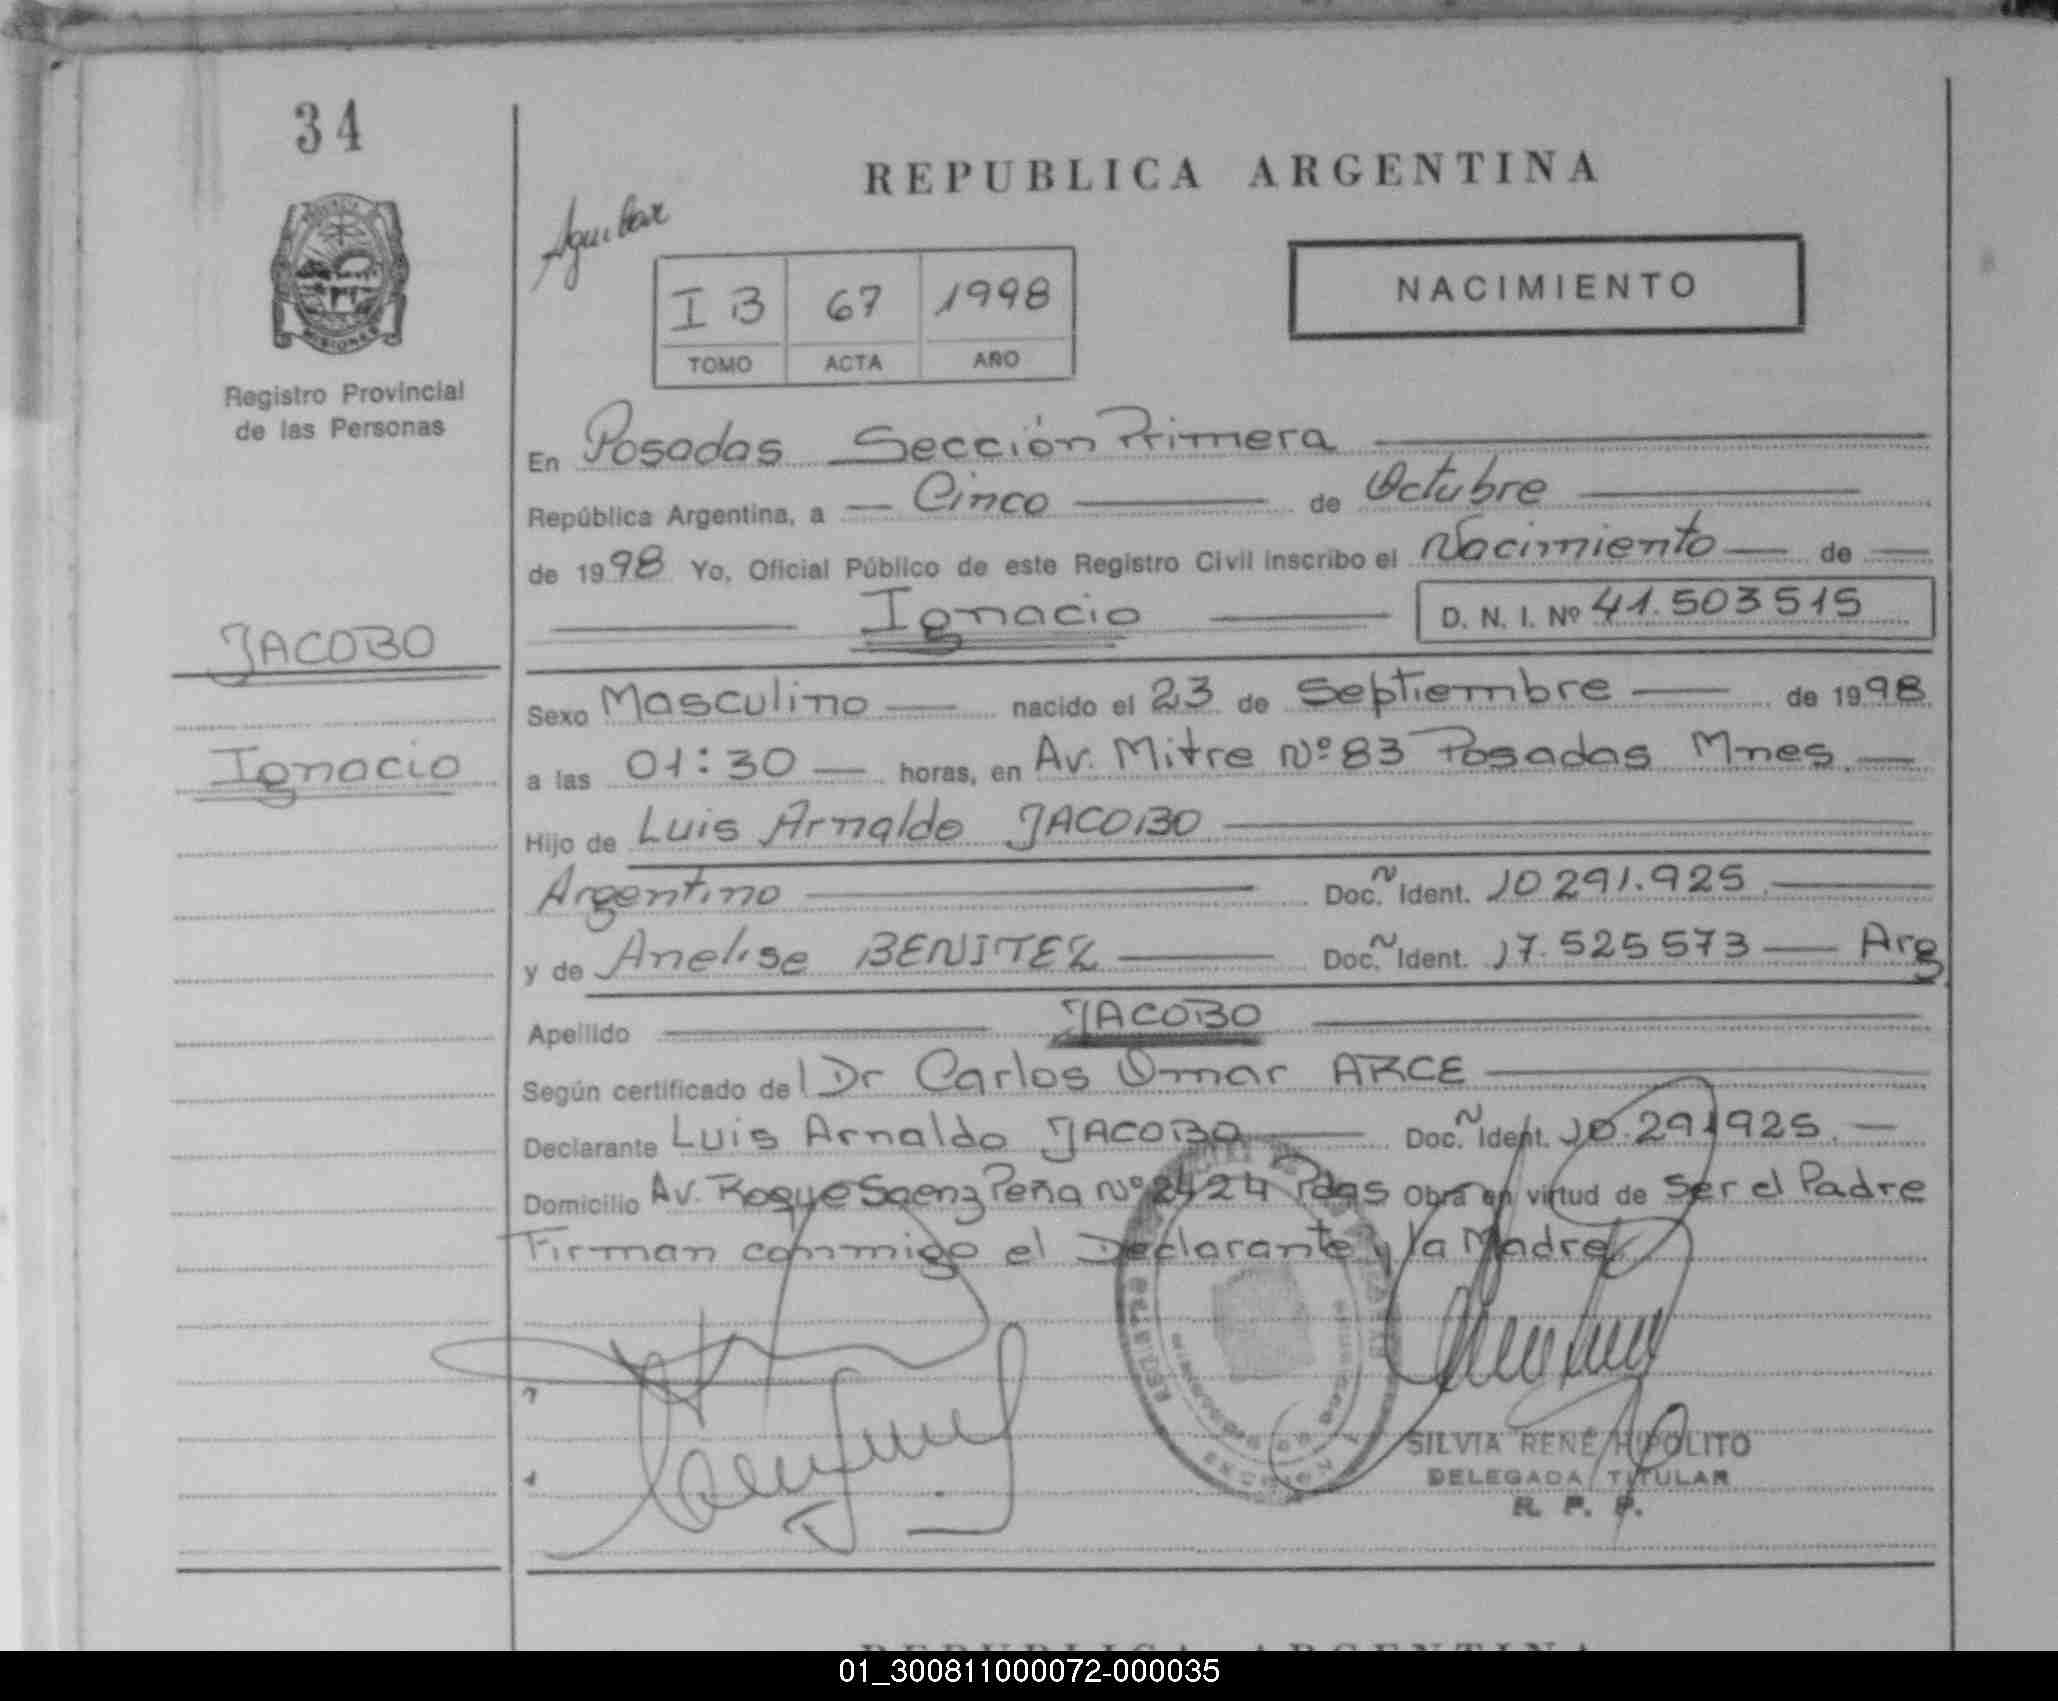 34
PROVINCIA
MISIONES
Registro Provincial
de las Personas
JACOBO
Ignacio
REPUBLICA ARGENTINA
Aguilar
I B 67 1998
TOMO ACTA AÑO
NACIMIENTO
En Posadas Sección Primera
República Argentina, a Cinco de Octubre
de 1998 Yo, Oficial Público de este Registro Civil inscribo el Nacimiento de
Ignacio D. N. I. Nº 41.503515
Sexo Masculino nacido el 23 de Septiembre de 1998
a las 01:30 horas, en Av. Mitre Nº 83 Posadas Mnes.
Hijo de Luis Arnaldo JACOBO
Argentino Doc. Ident. 10291.925
y de Anelise BENITEZ Doc. Ident. 17.525573 Arg
Apellido JACOBO
Según certificado del Dr Carlos Omar ARCE
Declarante Luis Arnaldo JACOBO Doc. Ident. 10.291925
Domicilio Av. Roque Saenz Peña Nº 2424 Pdas Obra en virtud de Ser el Padre
Firman conmigo el Declarante y la Madre
SILVIA RENÉ HIPOLITO
DELEGADA TITULAR
R. P. P.
REPUBLICA ARGENTINA
01_300811000072-000035